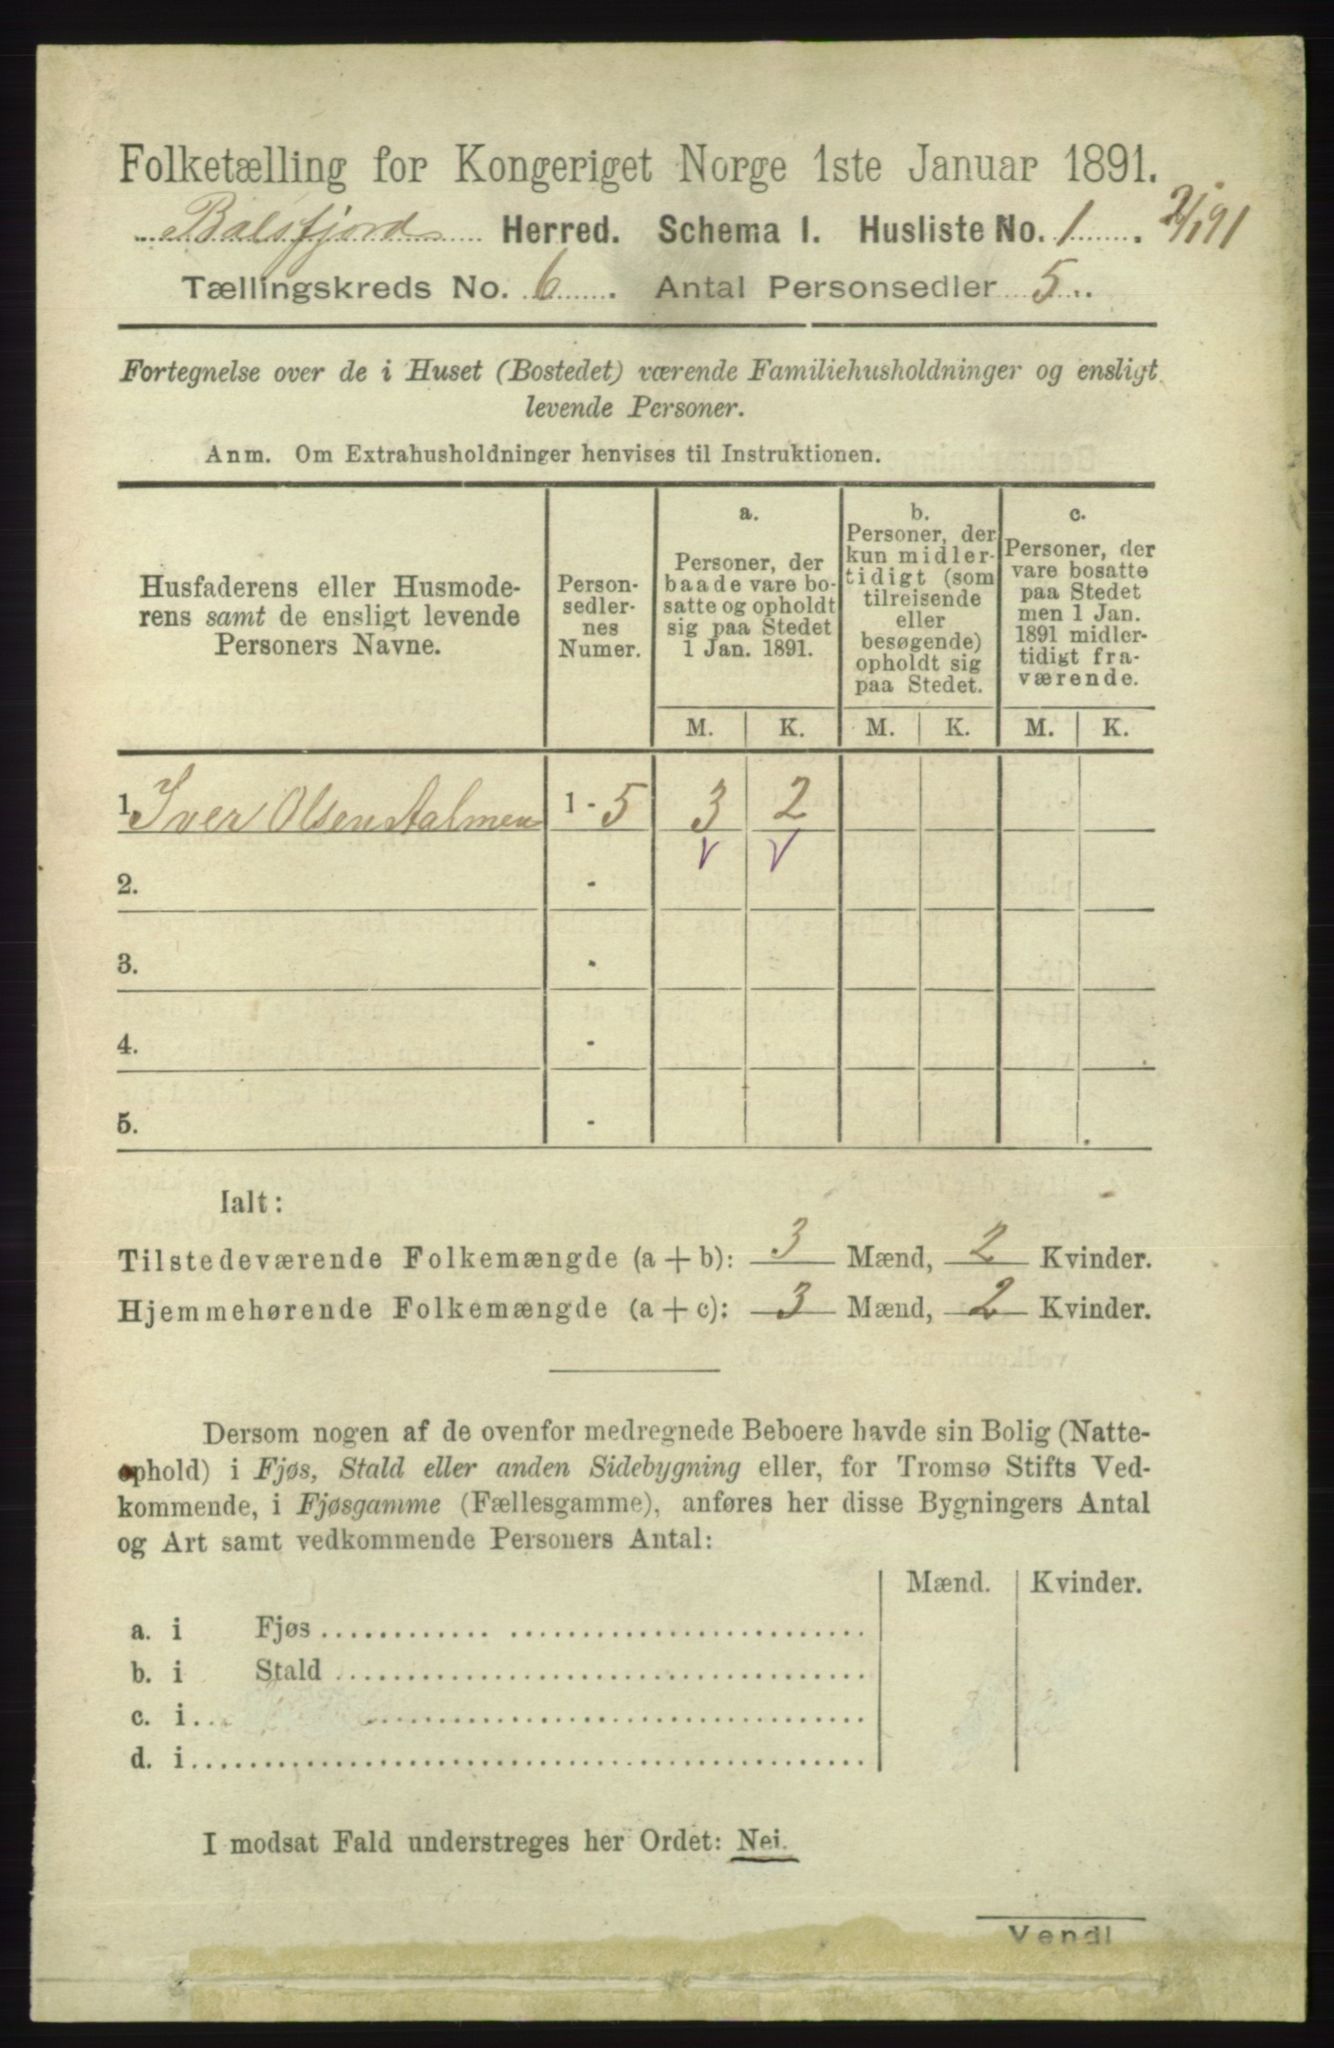 Folketælling for Kongeriget Norge 1ste Januar 1891.
Balsfjord Herred. Schema I. Husliste No. 1. 2/1 91
Tællingskreds No. 6. Antal Personsedler 5.
Fortegnelse over de i Huset (Bostedet) værende Familiehusholdninger og ensligt
levende Personer.
Anm. Om Extrahusholdninger henvises til Instruktionen.
Husfaderens eller Husmode-
rens samt de ensligt levende
Personers Navne.
Person-
sedler-
nes
Numer.
a.
Personer, der
baade vare bo-
satte og opholdt
sig paa Stedet
1 Jan. 1891.
b.
Personer, der
kun midler-
tidigt (som
tilreisende
eller
besøgende)
opholdt sig
paa Stedet.
c.
Personer, der
vare bosatte
paa Stedet
men 1 Jan.
1891 midler-
tidigt fra-
værende.
M. K. M. K. M. K.
1. Iver Olsen Aalmen 1 - 5 3 2
2. -
3. -
4. -
5. -
Ialt:
Tilstedeværende Folkemængde (a + b): 3 Mænd, 2 Kvinder.
Hjemmehørende Folkemængde (a + c): 3 Mænd, 2 Kvinder.
Dersom nogen af de ovenfor medregnede Beboere havde sin Bolig (Natte-
ophold) i Fjøs, Stald eller anden Sidebygning eller, for Tromsø Stifts Ved-
kommende, i Fjøsgamme (Fællesgamme), anføres her disse Bygningers Antal
og Art samt vedkommende Personers Antal:
Mænd. Kvinder.
a. i Fjøs
b. i Stald
c. i
d. i
I modsat Fald understreges her Ordet: Nei.
Vend!